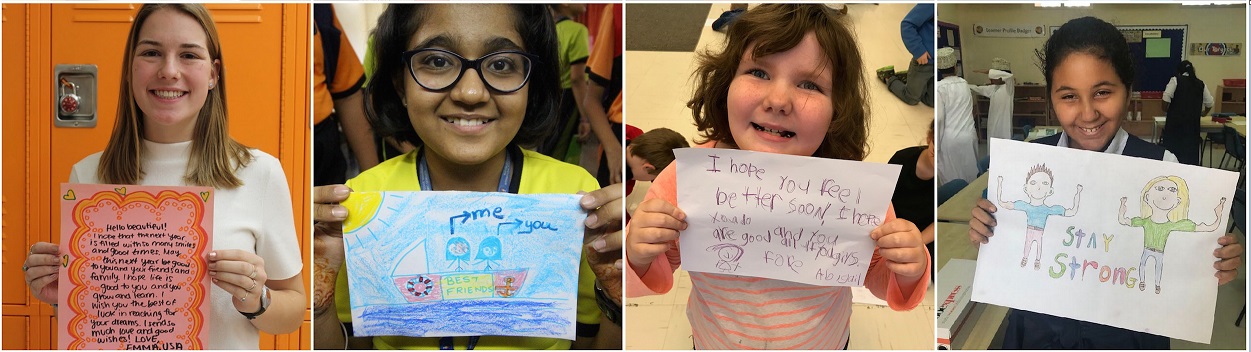 Hello beautiful!
I hope that the next year
is filled with so many smiles
and good times. May
this next year be good
to you and your friends and
family. I hope life is
good to you and you
grow and learn. I
wish you the best of
luck in reaching for
your dreams. I send so
much love and good
wishes! LOVE,
EMMA, USA
me
you
BEST
FRIENDS
I hope you feel
better soon, I hope
and you
are good
Fore
Abigail
STAY
Strong
Learner Profile Badges